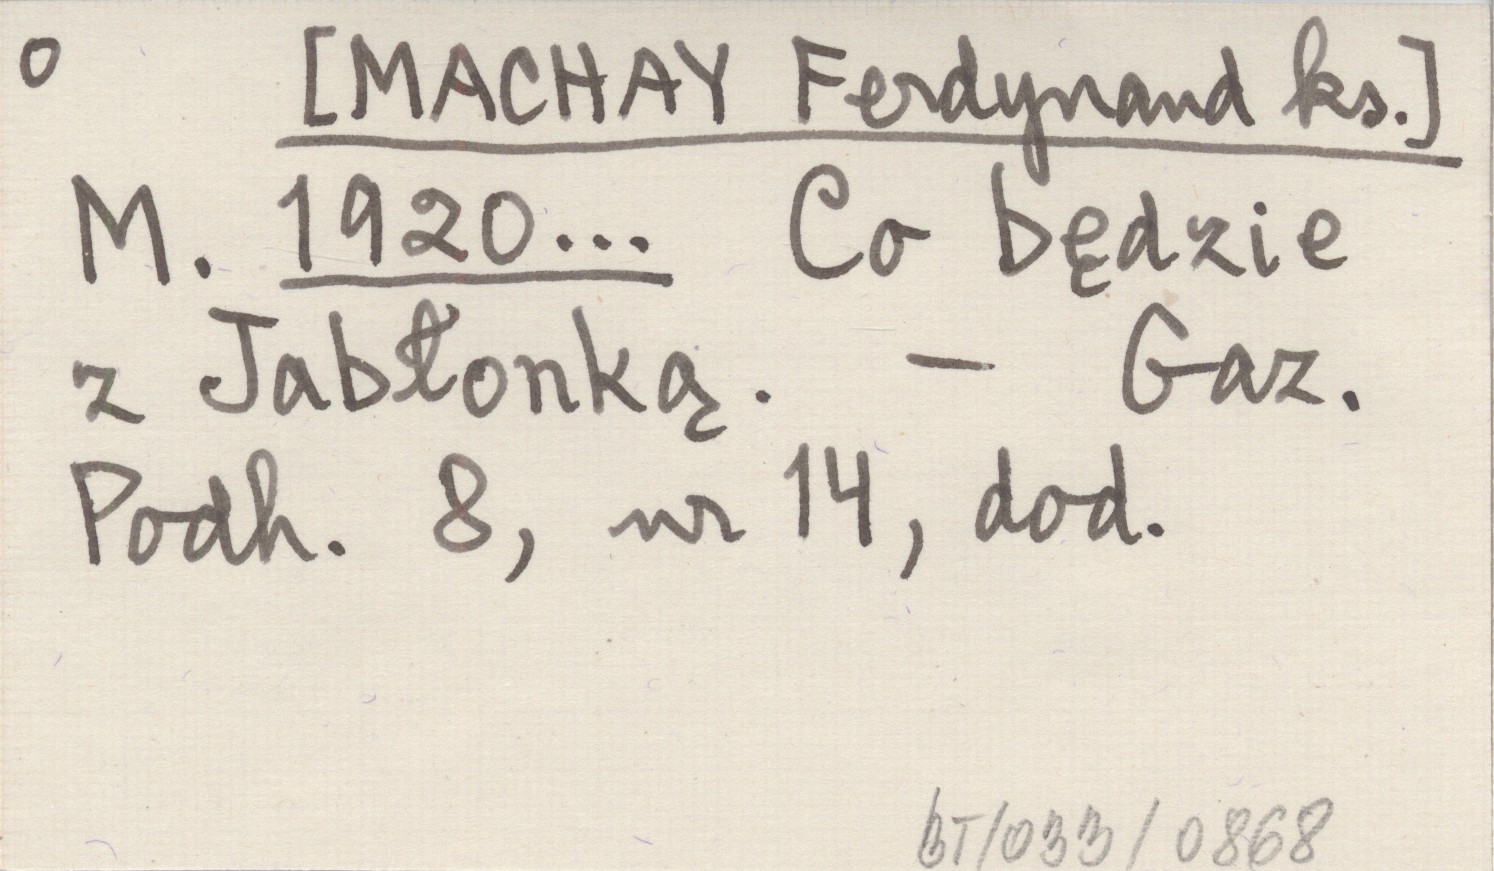 o [MACHAY Ferdynand ks.]
M. 1920... Co będzie
z Jabłonką. — Gaz.
Podh. 8, nr 14, dod.
BT/033/0868